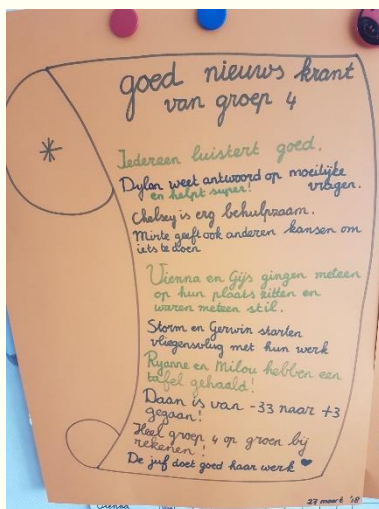 goed nieuws krant
van groep 4
Iedereen luistert goed.
Dylan weet antwoord op moeilijke
en helpt super! vragen.
Chelsey is erg behulpzaam.
Mirte geeft ook anderen kansen om
iets te doen
Vienna en Gijs gingen meteen
op hun plaats zitten en
waren meteen stil.
Storm en Gerwin starten
vliegensvlug met hun werk
Ryanne en Milou hebben een
tafel gehaald!
Daan is van -33 naar +3
gegaan!
Heel groep 4 op groen bij
rekenen!
De juf doet goed haar werk ♥
27 maart '18
Vienna